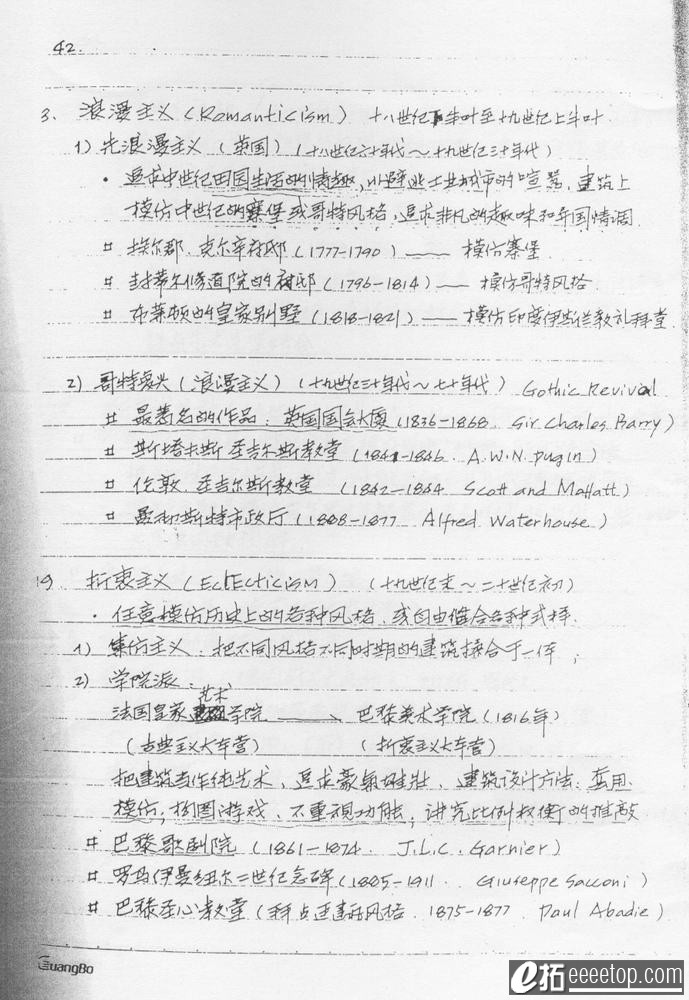 42.
3. 浪漫主义 (Romanticism) 十八世纪下半叶至十九世纪上半叶
1) 先浪漫主义 (英国) (十八世纪六十年代~十九世纪三十年代)
· 追求中世纪田园生活的情趣,以避逃工业城市的喧嚣. 建筑上
模仿中世纪的寨堡或哥特风格,追求非凡的趣味和异国情调.
埃尔郡.克尔辛府邸 (1777-1790) —— 模仿寨堡
封蒂尔修道院的府邸 (1796-1814) —— 模仿哥特风格
布莱顿的皇家别墅 (1818-1821) —— 模仿印度伊斯兰教礼拜堂
2) 哥特复兴 (浪漫主义) (十九世纪三十年代~七十年代) Gothic Revival
最著名的作品: 英国国会大厦 (1836-1868. Sir Charles Barry)
斯塔卡斯 圣吉尔斯教堂 (1841-1846. A.W.N. Pugin)
伦敦. 圣吉尔斯教堂 (1842-1844 Scott and Moffatt)
曼彻斯特市政厅 (1868-1877 Alfred Waterhouse)
折衷主义 (EclEcticism) (十九世纪末~二十世纪初)
· 任意模仿历史上的各种风格,或自由组合各种式样.
1) 集仿主义. 把不同风格不同时期的建筑揉合于一体;
2) 学院派:
艺术
法国皇家学院 —— 巴黎美术学院 (1816年)
(古典主义大本营) (折衷主义大本营)
把建筑当作纯艺术, 追求豪气雄壮. 建筑设计方法: 套用.
模仿, 构图游戏. 不重视功能, 讲究比例权衡的推敲
巴黎歌剧院 (1861-1874. J.L.C. Garnier)
罗马伊曼纽尔二世纪念碑 (1885-1911. Giuseppe Sacconi)
巴黎圣心教堂 (拜占廷建筑风格. 1875-1877. Paul Abadie)
GuangBo
e拓 eeeetop.com